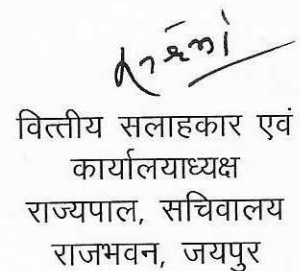 वित्तीय सलाहकार एवं
कार्यालयाध्यक्ष
राज्यपाल, सचिवालय
राजभवन, जयपुर